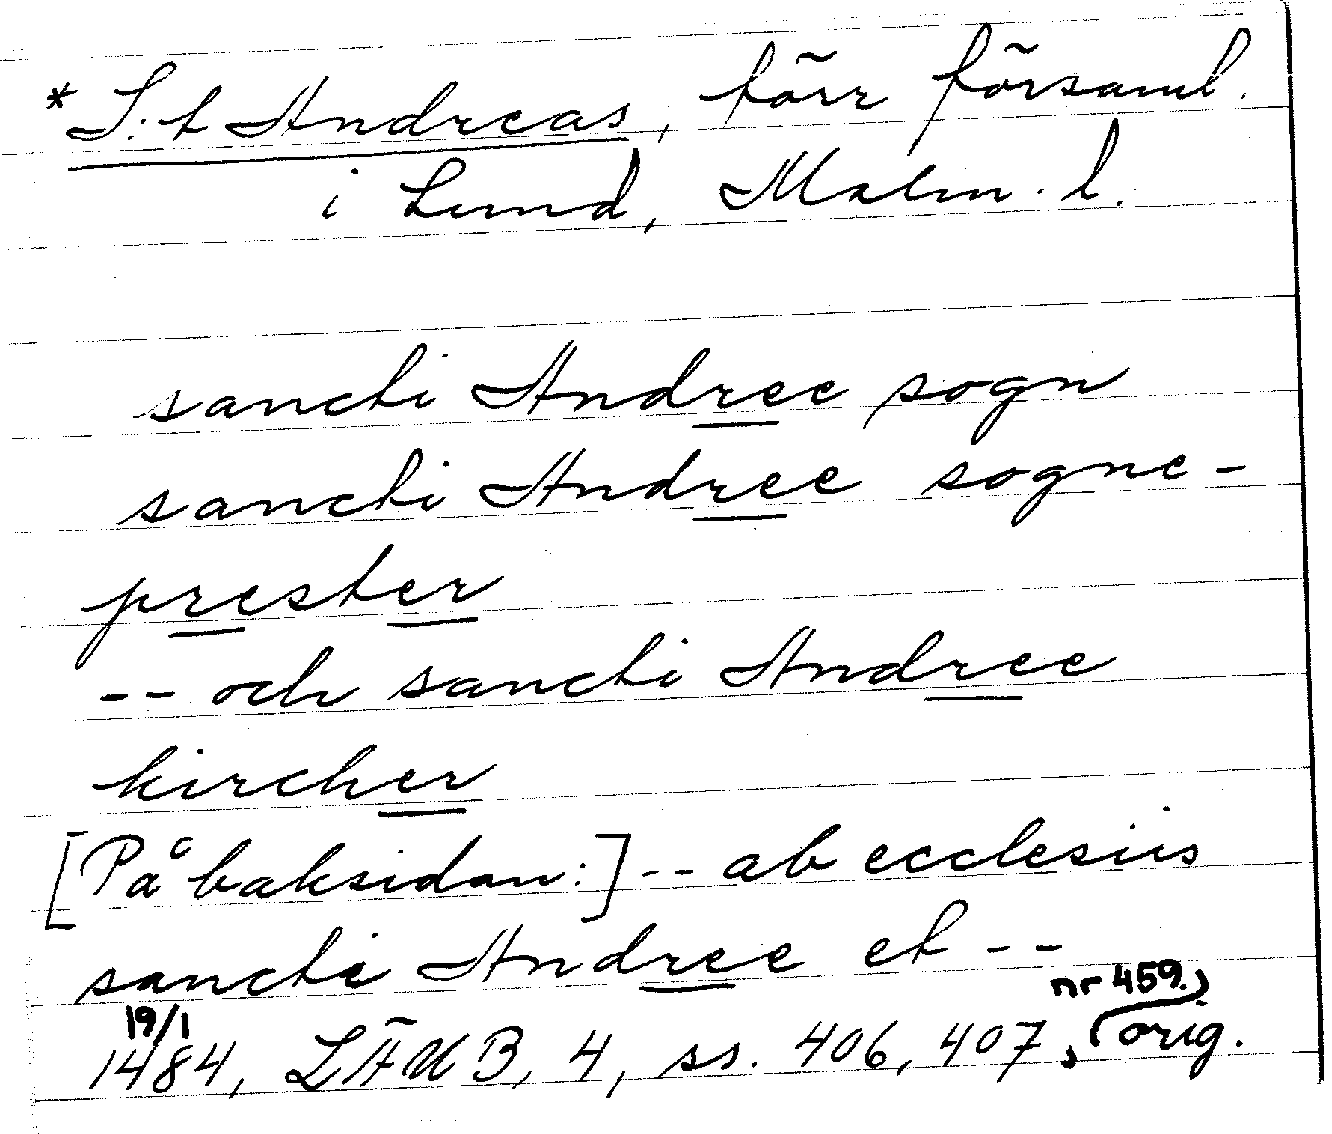 * S:t Andreas, förr församl.
i Lund, Malm. l.
sancti Andree sogn
sancti Andree sogne-
prester
-- och sancti Andree
kircher
[På baksidan:] -- ab ecclesiis
sancti Andree et --
19/1 nr 459.,
1484, LÄUB, 4, ss. 406, 407, orig.